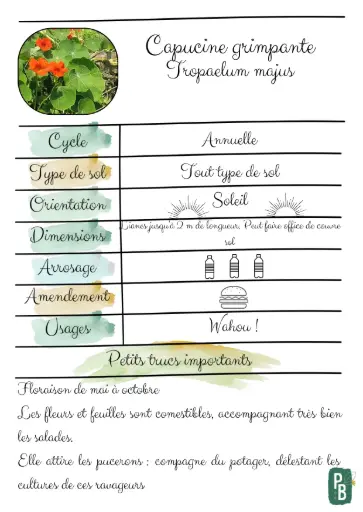 Capucine grimpante
Tropaelum majus
Cycle
Annuelle
Type de sol
Tout type de sol
Orientation
Soleil
Dimensions
Lianes jusqu'à 2 m de longueur. Peut faire office de couvre
sol
Arrosage
Amendement
Usages
Wahou !
Petits trucs importants
Floraison de mai à octobre
Les fleurs et feuilles sont comestibles, accompagnant très bien
les salades.
Elle attire les pucerons : compagne du potager, délestant les
cultures de ces ravageurs
PB